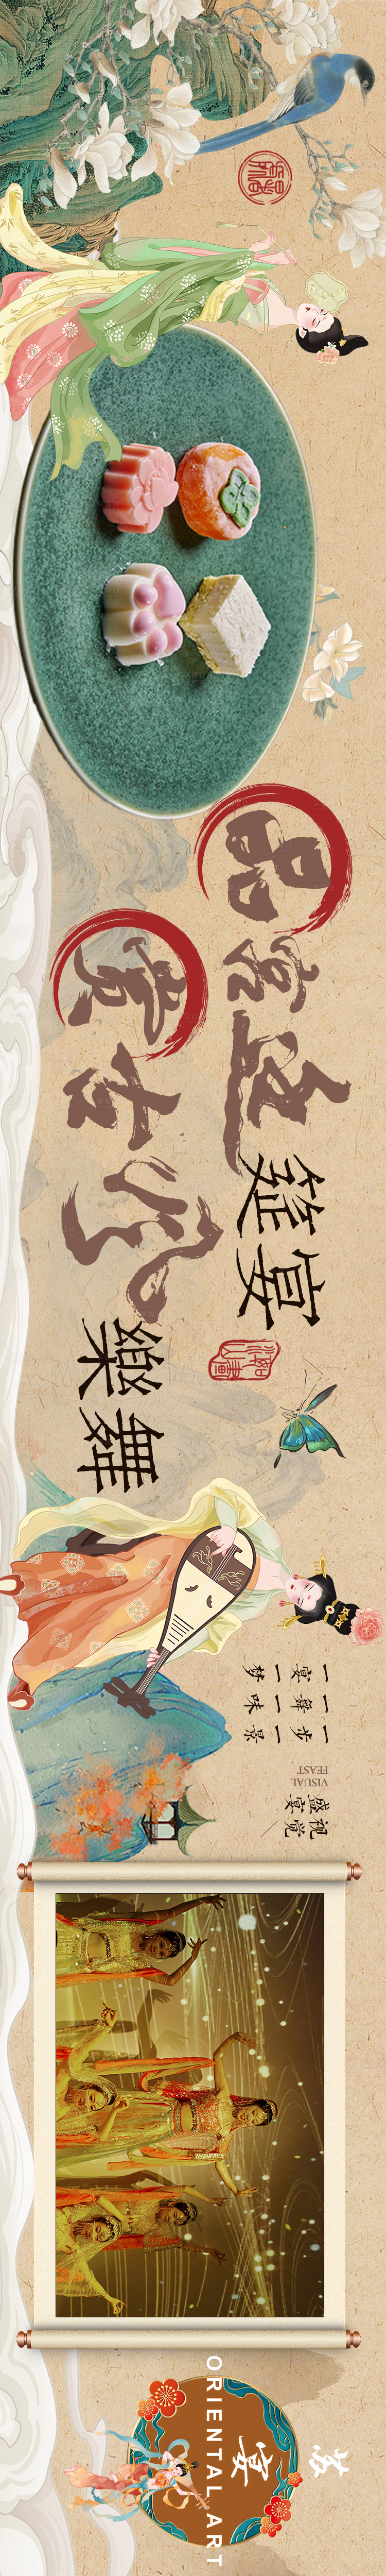 品宫廷筵宴
赏古风樂舞
一步一景
一舞一味
一宴一梦
视觉
盛宴
VISUAL
FEAST
宴
ORIENTAL ART